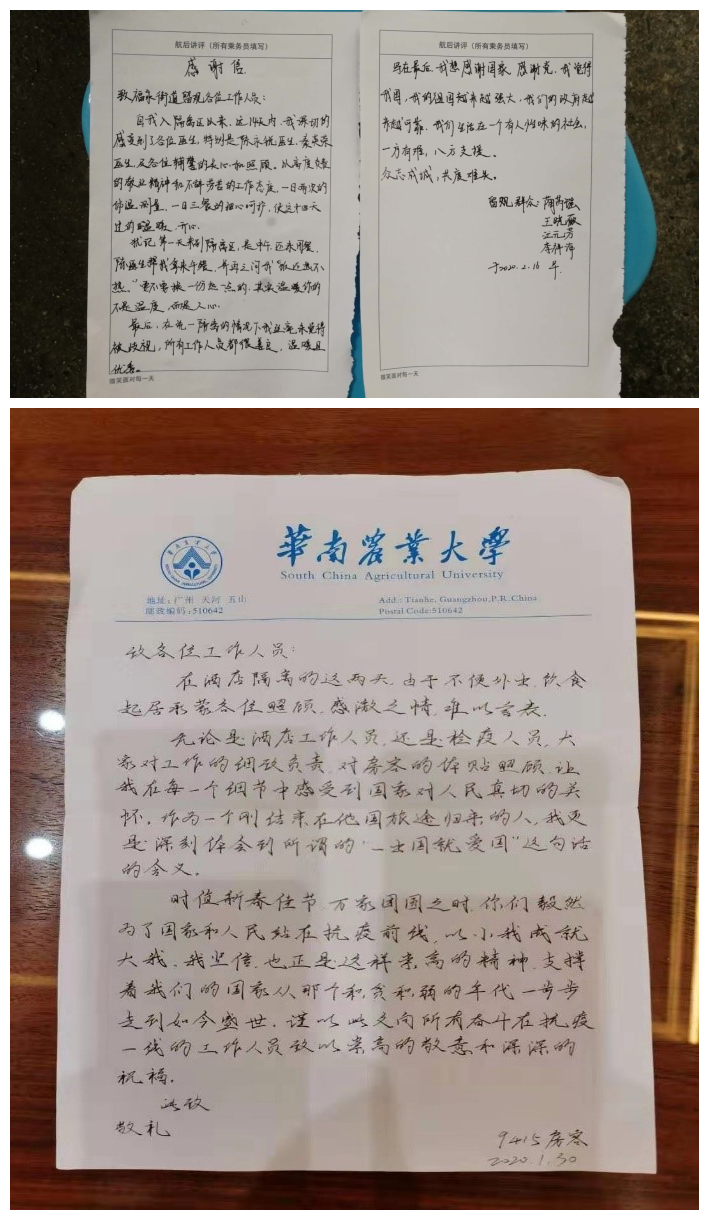 航后讲评（所有乘务员填写）
感谢信
致福永街道留观各位工作人员：
自我入隔离区以来，这14天内，我深切的
感受到了各位医生，特别是陈永锐医生
医生，及各位辅警的关心和照顾。从高度负责
的敬业精神和不辞劳苦的工作态度，一日两次的
体温测量，一日三餐的细心呵护，使这十四天
过的温暖、开心。
犹记第一天来到隔离区，是中午，还未用餐，
陈医生帮我拿来午餐，并再三问我“饭还热不
热。”要不要换一份热一点的，其实温暖你的
不是温度，而是人心。
最后，在统一隔离的情况下我丝毫未觉得
被歧视，所有工作人员都很善良，温暖且
优秀。
微笑面对每一天
航后讲评（所有乘务员填写）
写在最后，我想感谢国家，感谢党，我觉得
我国，我的祖国越来越强大，我们的政府越
来越可靠，我们生活在一个有人性味的社会，
一方有难，八方支援。
众志成城，共度难关。
留观群众：
王晓薇
江元芳
李祥萍
于2020.2.16 早.
微笑面对每一天
華南農業大學
South China Agricultural University
地址：广州 天河 五山
邮政编码：510642
Add.: Tianhe, Guangzhou,P.R.China
Postal Code:510642
致各位工作人员：
在酒店隔离的这两天，由于不便外出，饮食
起居承蒙各位照顾，感激之情，难以言表.
无论是酒店工作人员，还是检疫人员，大
家对工作的细致负责，对房客的体贴照顾，让
我在每一个细节中感受到国家对人民真切的关
怀。作为一个刚结束在他国旅途归来的人，我更
是深刻体会到所谓的“一出国就爱国”这句话
的含义。
时值新春佳节，万家团圆之时，你们毅然
为了国家和人民站在抗疫前线，以小我成就
大我，我坚信，也正是这样崇高的精神，支撑
着我们的国家从那个积贫积弱的年代一步步
走到如今盛世。谨以此文向所有奋斗在抗疫
一线的工作人员致以崇高的敬意和深深的
祝福.
此致
敬礼
9415房客
2020.1.30